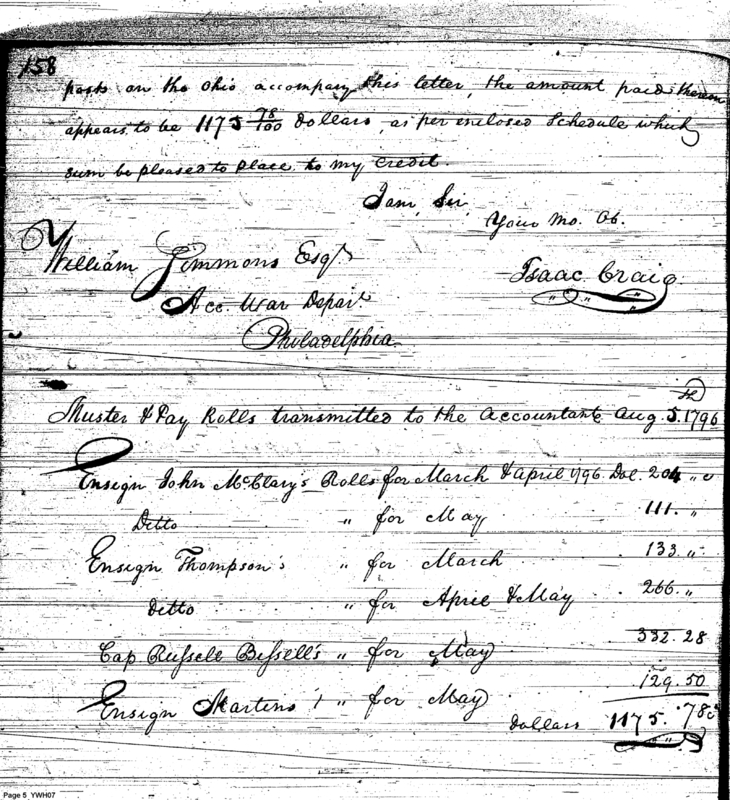 158
posts on the Ohio accompany this letter, the amount paid thereon
appears to be 1175 78/100 dollars, as per enclosed Schedule which
sum be pleased to place to my Credit.
I am, Sir,
Your Mo. Ob.
William Simmons Esqr.
Isaac Craig
Acc. War Depart
Philadelphia
Muster & Pay Rolls transmitted to the Accountant Aug. 5th 1796
Ensign John McClary's Rolls for March & April 1796. Dol. 204 „ 0
Ditto „ for May 111. „
Ensign Thompson's „ for March 133 „
ditto „ for April & May 266 „
Cap Russell Bissell's „ for May 332. 28
Ensign Martens „ for May 129. 50
Dollars 1175. 78
Page 5 YWH07